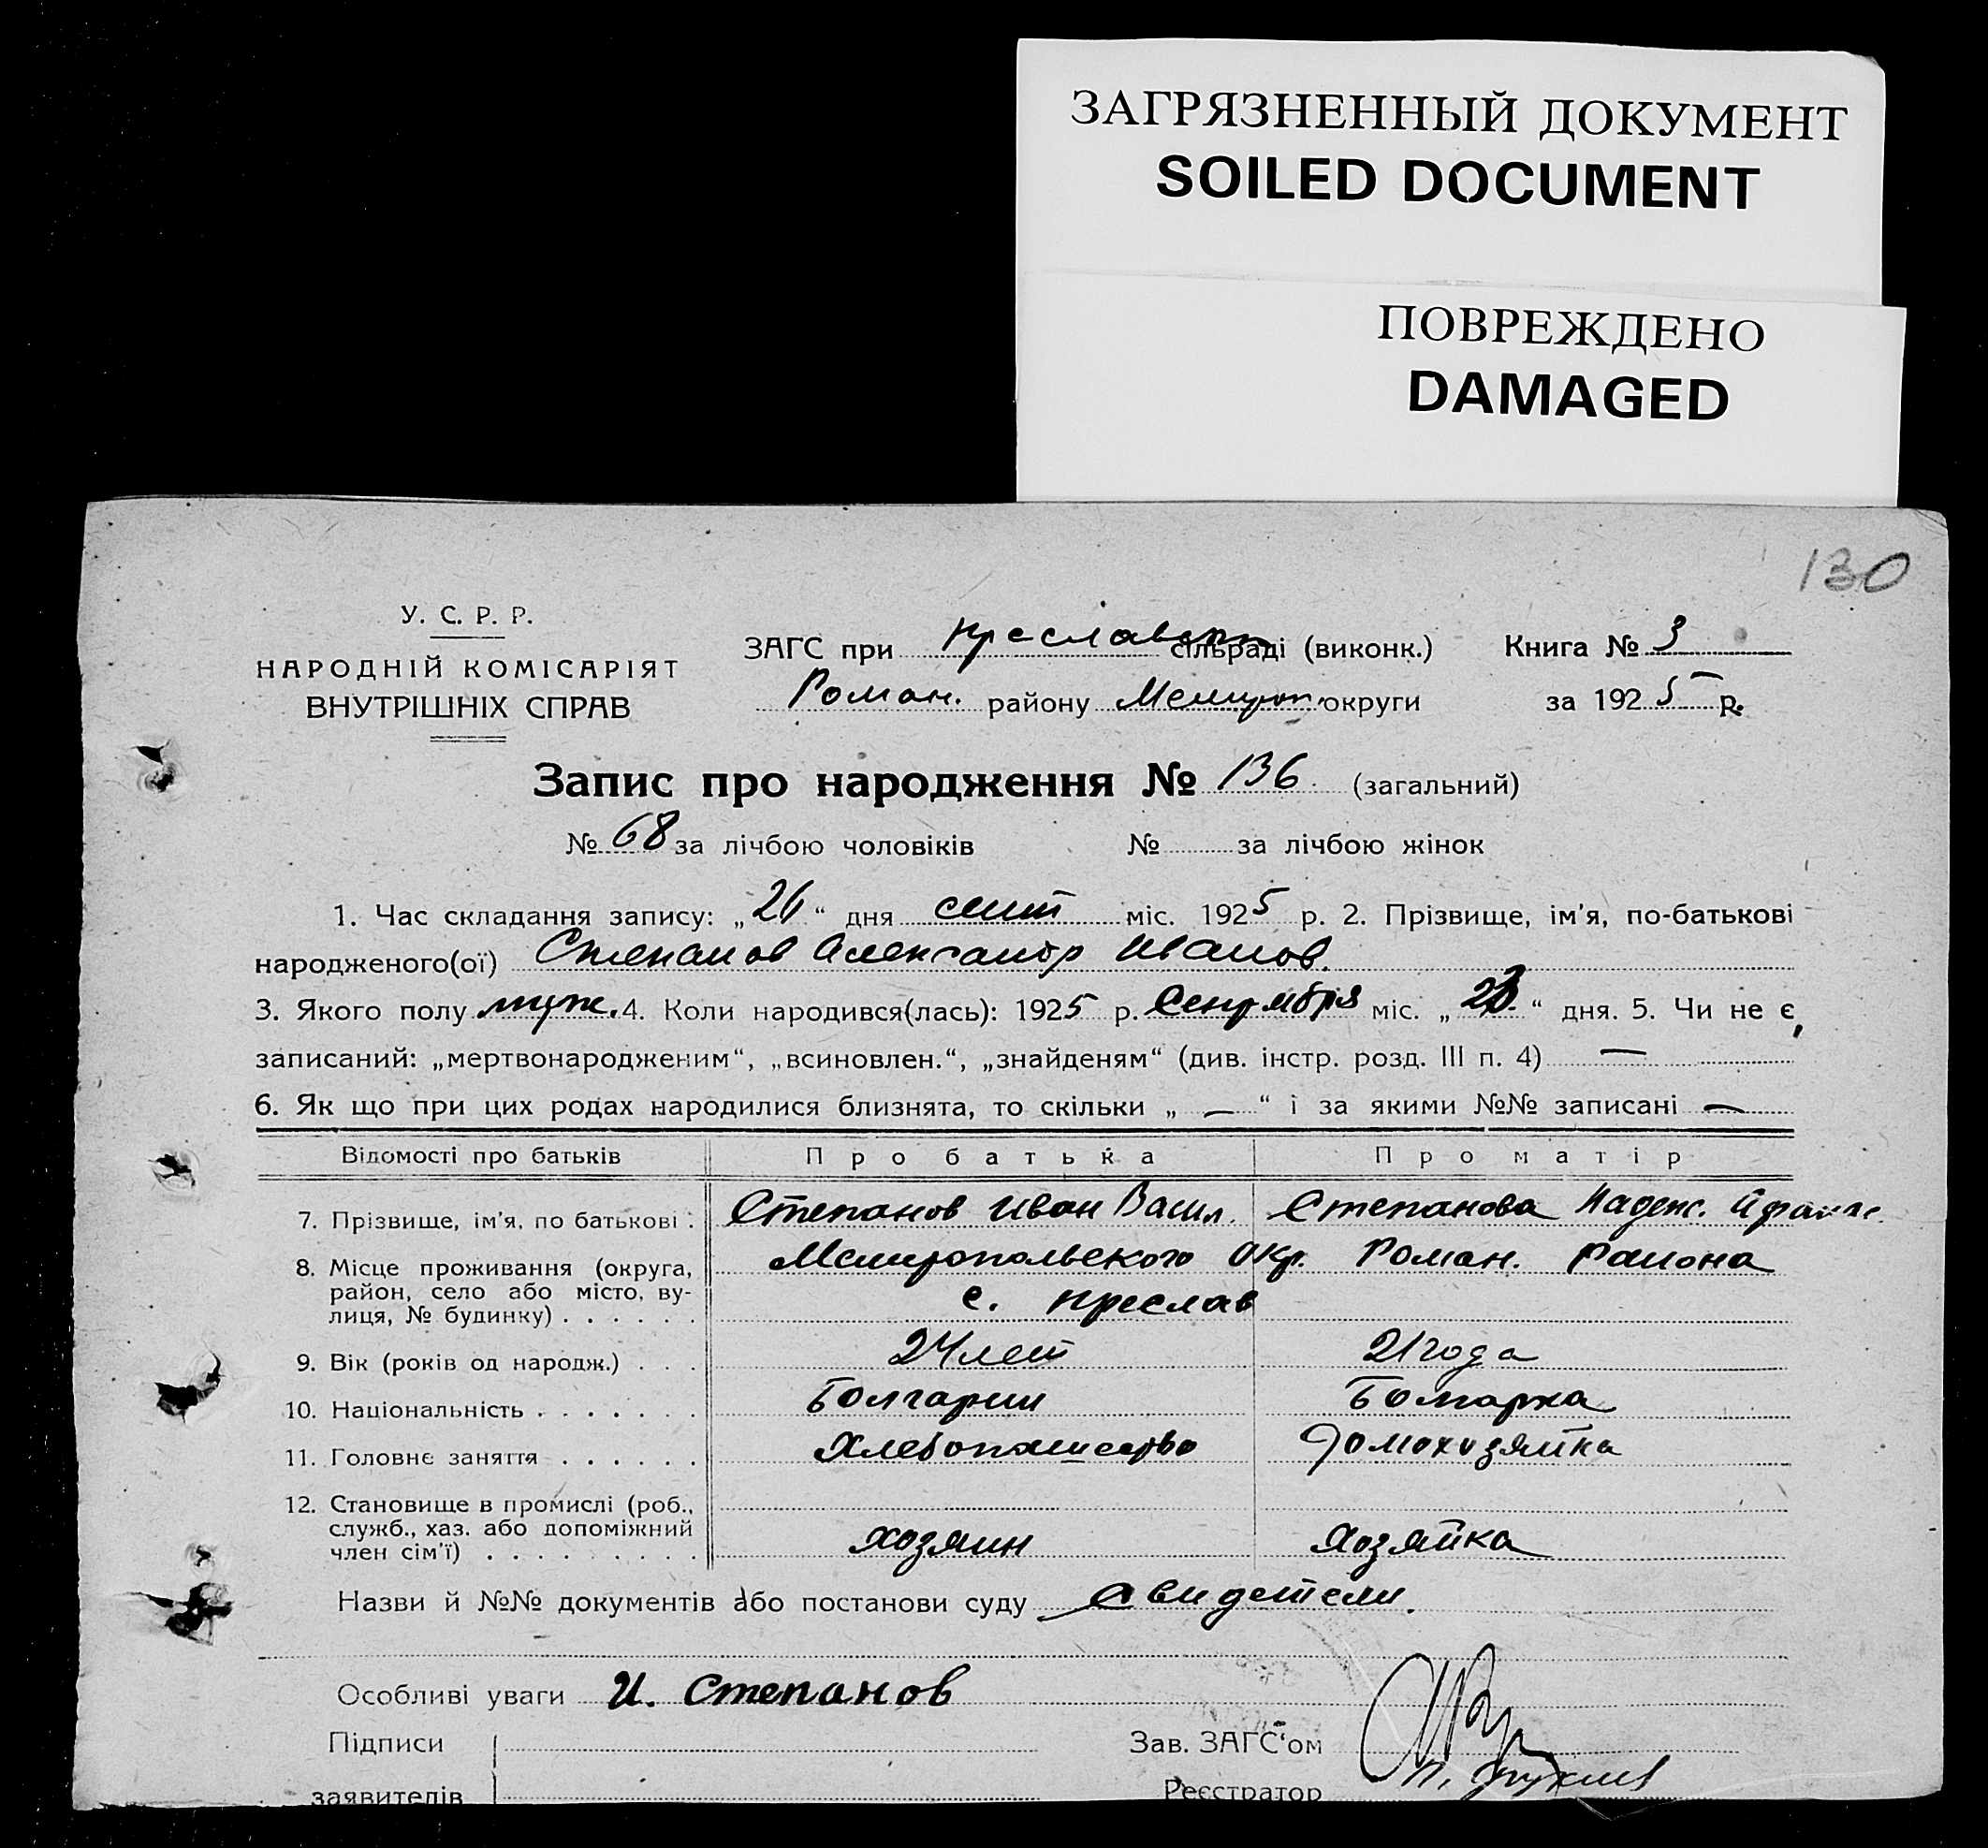 ЗАГРЯЗНЕННЫЙ ДОКУМЕНТ
SOILED DOCUMENT
ПОВРЕЖДЕНО
DAMAGED
130
У. С. Р. Р.
НАРОДНІЙ КОМІСАРІЯТ
ВНУТРІШНІХ СПРАВ
ЗАГС при Преславск сільраді (виконк.) Книга № 3
Роман. району Мелитоп. округи за 1925 р.
Запис про народження № 136 (загальний)
№ 68 за лічбою чоловіків № за лічбою жінок
1. Час складання запису: „26“ дня сент міс. 1925 р. 2. Прізвище, ім'я, по-батькові
народженого(ої) Степанов Александр Иванов.
3. Якого полу муж. 4. Коли народився(лась): 1925 р. Сентября міс. „23“ дня. 5. Чи не є,
записаний: „мертвонародженим“, „всиновлен.“, „знайденям“ (див. інстр. розд. III п. 4) —
6. Як що при цих родах народилися близнята, то скільки „ — “ і за якими №№ записані —
Відомості про батьків Про батька Про матір
7. Прізвище, ім'я, по батькові : Степанов Иван Васил. Степанова Надеж.
8. Місце проживання (округа, Мелитопольского Окр. Роман. Района
район, село або місто, ву- с. Преслав
лиця, № будинку) . . . . . .
9. Вік (років од народж.) . . . 24 лет 21 года
10. Національність . . . . . . . Болгарин Болгарка
11. Головнє заняття . . . . . . Хлебопашество Домохозяйка
12. Становище в промислі (роб.,
служб., хаз. або допоміжний
член сім'ї) . . . . . . . . . хозяин Хозяйка
Назви й №№ документів або постанови суду Свидетели.
Особливі уваги И. Степанов
Підписи Зав. ЗАГС'ом
заявителів Реєстратор